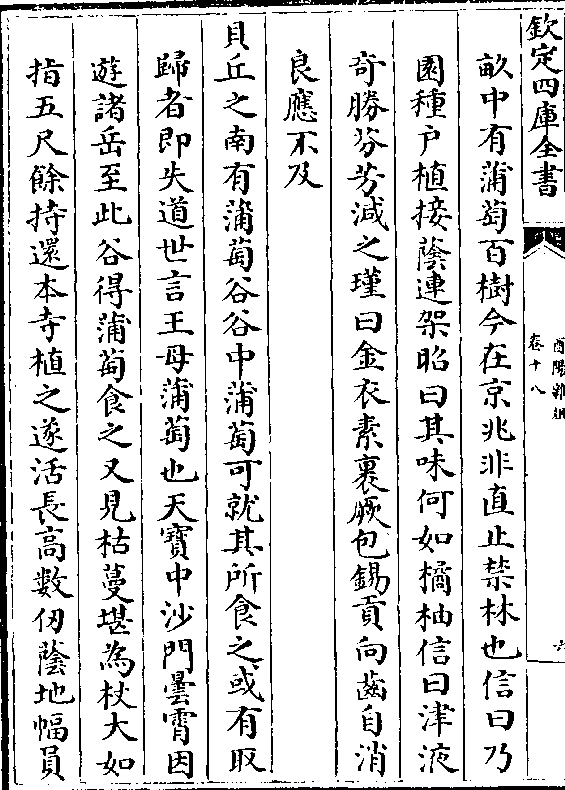 欽定四庫全書
酉陽雜俎
卷十八
六
畝中有蒲萄百樹今在京兆非直止禁林也信曰乃
園種戶植接蔭連架昭曰其味何如橘柚信曰津液
奇勝芬芳減之瑾曰金衣素裏厥包錫貢向齒自消
良應不及
貝丘之南有蒲萄谷谷中蒲萄可就其所食之或有取
歸者即失道世言王母蒲萄也天寶中沙門曇霄因
遊諸岳至此谷得蒲萄食之又見枯蔓堪為杖大如
指五尺餘持還本寺植之遂活長高數仞蔭地幅員